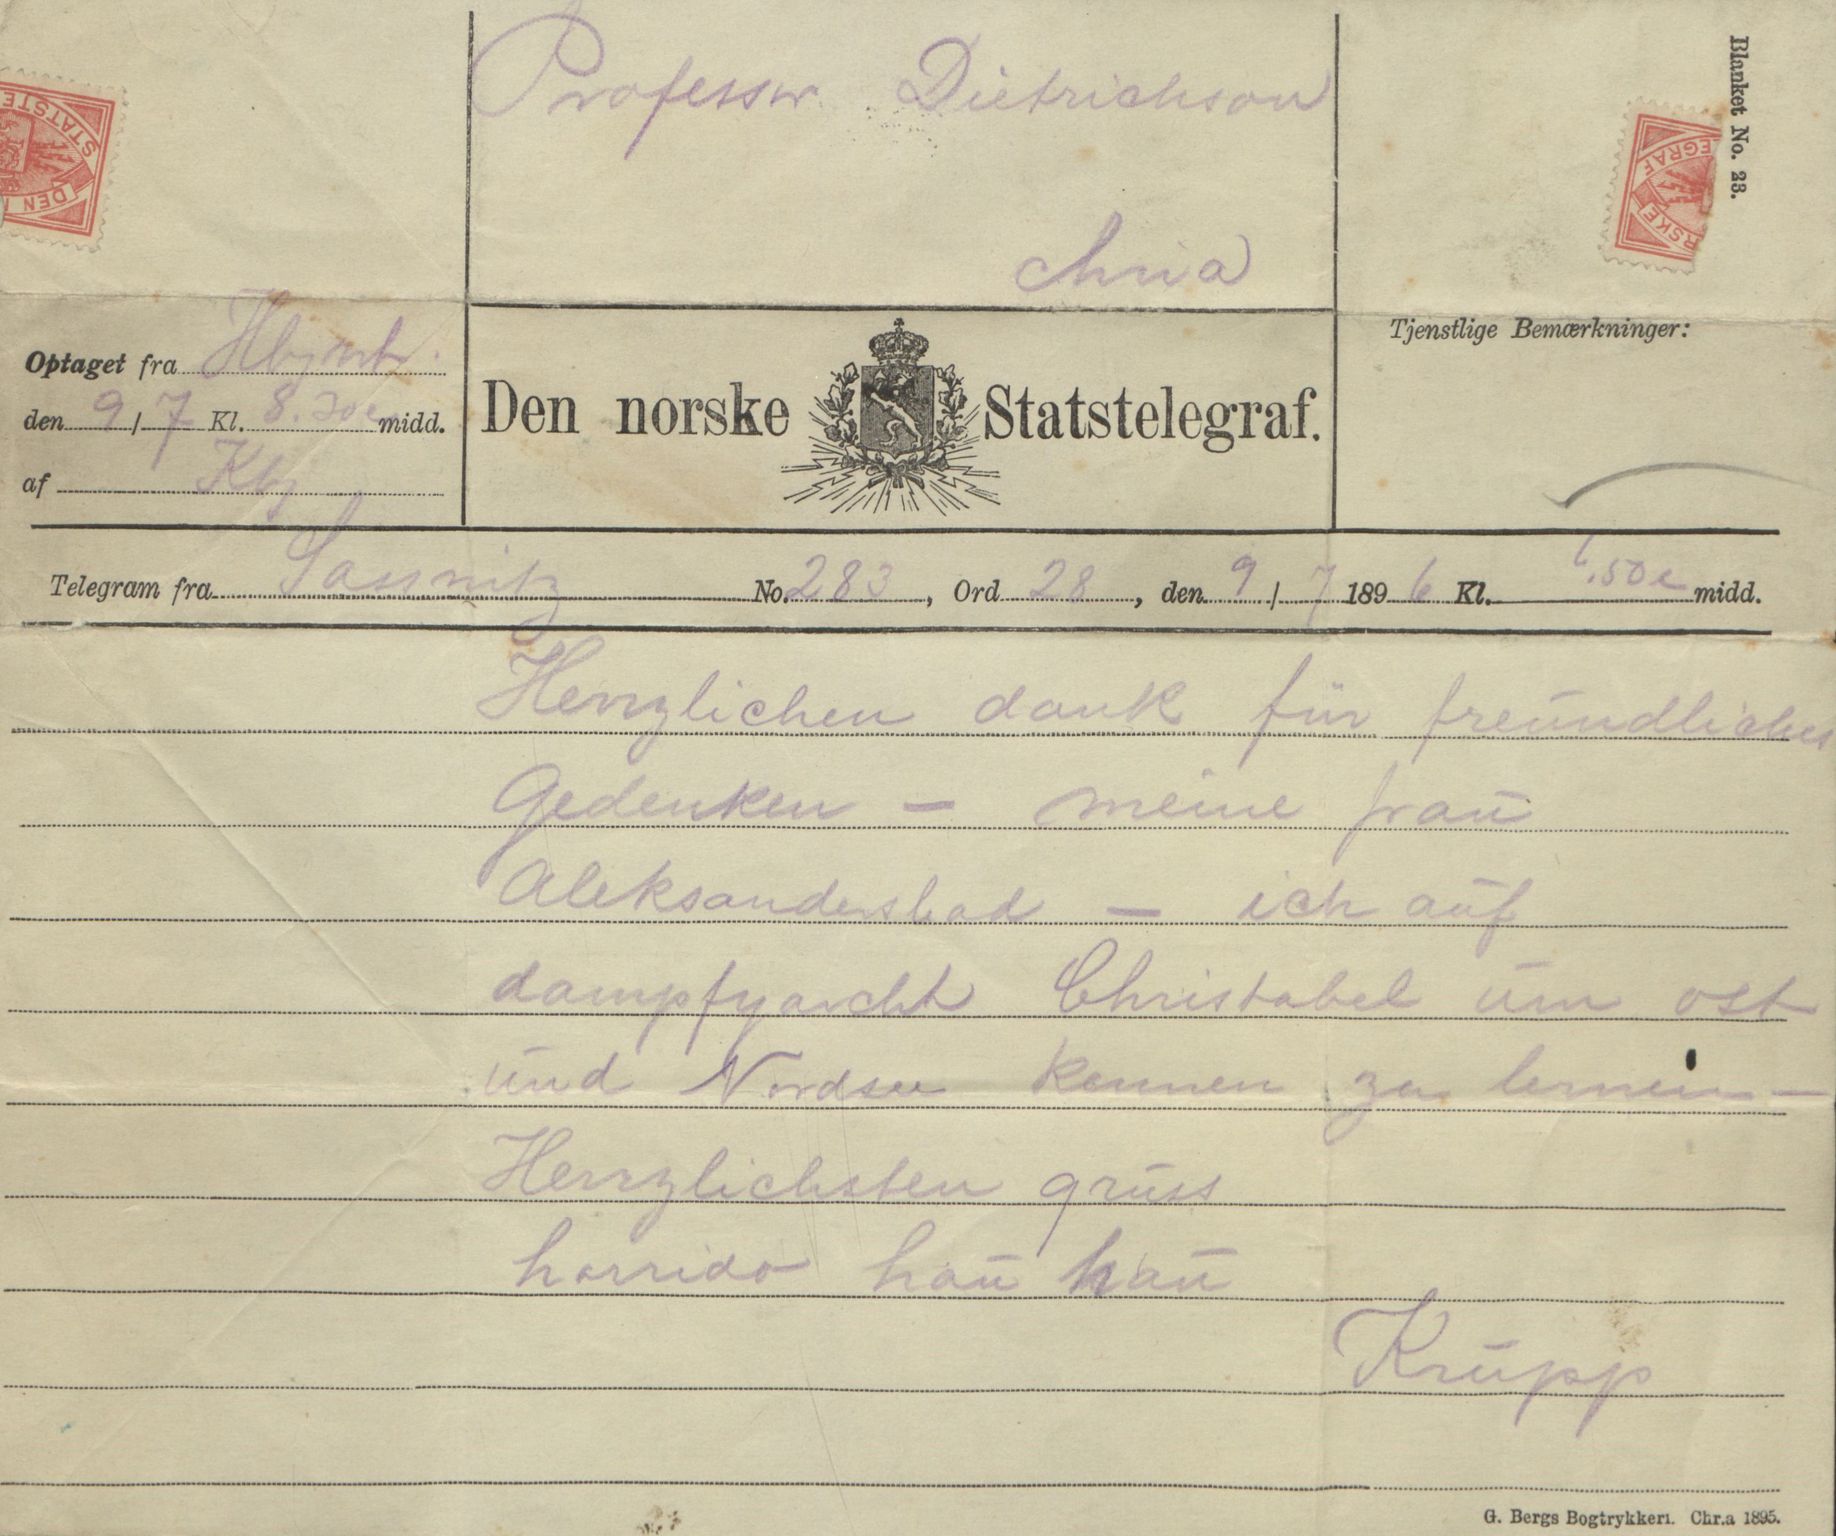 Professor Dietrichson
Chria
Blanket No. 23.
Optaget fra
den 9/7 Kl. 8.30 e midd.
af Kbj
Den norske Statstelegraf.
Tjenstlige Bemærkninger:
Telegram fra Sassnitz No. 283, Ord 28, den 9/7 1896 Kl. 6.50 e midd.
Herzlichen dank für freundliches
Gedenken — meine frau
Aleksandersbad — ich auf
dampfyacht Christabel um ost
und Nordsee kennen zu lernen —
Herzlichsten gruss
horrido hau hau
Krupp
G. Bergs Bogtrykkeri. Chr.a 1895.